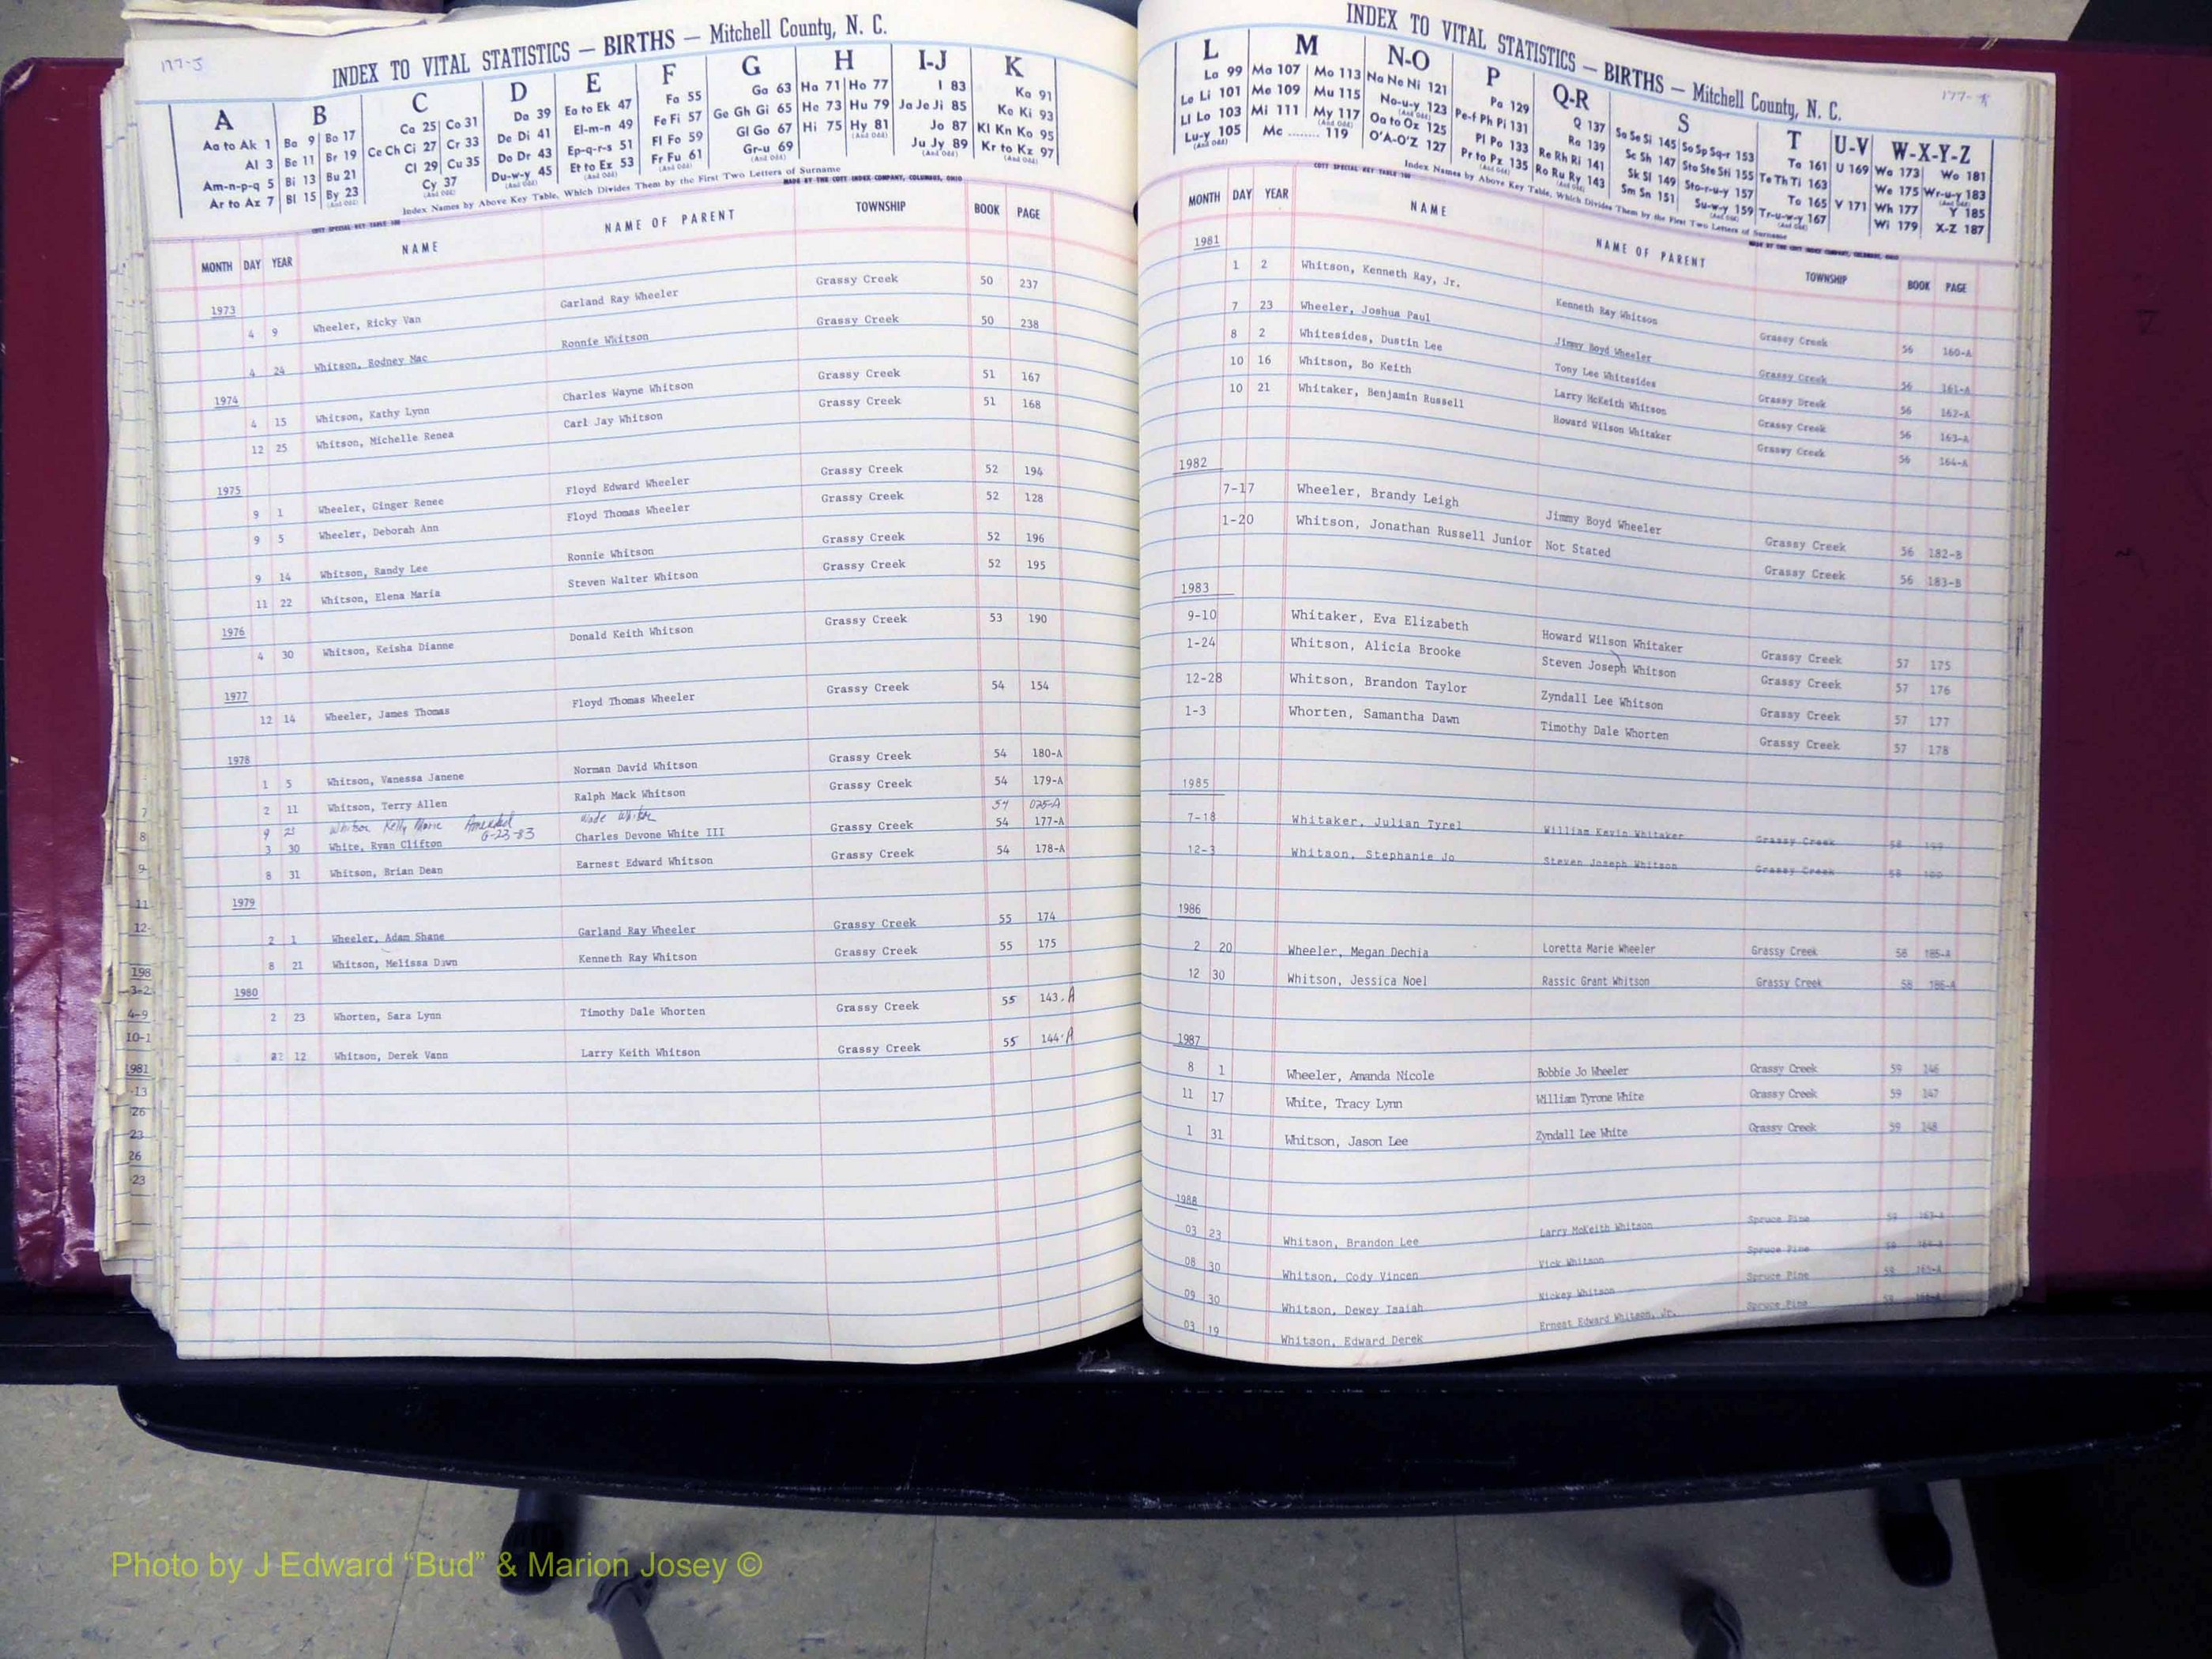 177-J
INDEX TO VITAL STATISTICS — BIRTHS — Mitchell County, N. C.
A B C D E F G H I-J K
Aa to Ak 1 Ba 9 Bo 17 Ca 25 Co 31 Da 39 Ea to Ek 47 Fa 55 Ga 63 Ha 71 Ho 77 I 83 Ka 91
Al 3 Be 11 Br 19 Ce Ch Ci 27 Cr 33 De Di 41 El-m-n 49 Fe Fi 57 Ge Gh Gi 65 He 73 Hu 79 Ja Je Ji 85 Ke Ki 93
Am-n-p-q 5 Bi 13 Bu 21 Cl 29 Cu 35 Do Dr 43 Ep-q-r-s 51 Fl Fo 59 Gl Go 67 Hi 75 Hy 81 (And Odd) Jo 87 Kl Kn Ko 95
Ar to Az 7 Bl 15 By 23 (And Odd) Cy 37 (And Odd) Du-w-y 45 (And Odd) Et to Ez 53 (And Odd) Fr Fu 61 (And Odd) Gr-u 69 (And Odd) Ju Jy 89 (And Odd) Kr to Kz 97 (And Odd)
Index Names by Above Key Table, Which Divides Them by the First Two Letters of Surname
COTT SPECIAL KEY TABLE 100 MADE BY THE COTT INDEX COMPANY, COLUMBUS, OHIO
MONTH DAY YEAR NAME NAME OF PARENT TOWNSHIP BOOK PAGE
1973
4 9 Wheeler, Ricky Van Garland Ray Wheeler Grassy Creek 50 237
4 24 Whitson, Rodney Mac Ronnie Whitson Grassy Creek 50 238
1974
4 15 Whitson, Kathy Lynn Charles Wayne Whitson Grassy Creek 51 167
12 25 Whitson, Michelle Renea Carl Jay Whitson Grassy Creek 51 168
1975
9 1 Wheeler, Ginger Renee Floyd Edward Wheeler Grassy Creek 52 194
9 5 Wheeler, Deborah Ann Floyd Thomas Wheeler Grassy Creek 52 128
9 14 Whitson, Randy Lee Ronnie Whitson Grassy Creek 52 196
11 22 Whitson, Elena Maria Steven Walter Whitson Grassy Creek 52 195
1976
4 30 Whitson, Keisha Dianne Donald Keith Whitson Grassy Creek 53 190
1977
12 14 Wheeler, James Thomas Floyd Thomas Wheeler Grassy Creek 54 154
1978
1 5 Whitson, Vanessa Janene Norman David Whitson Grassy Creek 54 180-A
2 11 Whitson, Terry Allen Ralph Mack Whitson Grassy Creek 54 179-A
9 Whitson Kelly Marie Amended 6-23-83 Wade 54 025-A
3 30 White, Ryan Clifton Charles Devone White III Grassy Creek 54 177-A
8 31 Whitson, Brian Dean Earnest Edward Whitson Grassy Creek 54 178-A
1979
2 1 Wheeler, Adam Shane Garland Ray Wheeler Grassy Creek 55 174
8 21 Whitson, Melissa Dawn Kenneth Ray Whitson Grassy Creek 55 175
1980
2 23 Whorten, Sara Lynn Timothy Dale Whorten Grassy Creek 55 143-A
12 Whitson, Derek Vann Larry Keith Whitson Grassy Creek 55 144-A
7
8
9-
11
12-
198
-3-2
4-9
10-1
1981
-13
26
23
26
23
INDEX TO VITAL STATISTICS — BIRTHS — Mitchell County, N. C.
L M N-O P Q-R S T U-V W-X-Y-Z
La 99 Ma 107 Mo 113 Na Ne Ni 121 Pa 129 Q 137 Sa Se Si 145 So Sp Sq-r 153 Ta 161 U 169 Wa 173 Wo 181
Le Li 101 Me 109 Mu 115 No-u-y 123 (And Odd) Pe-f Ph Pi 131 Ra 139 Sc Sh 147 Sta Ste Sti 155 Te Th Ti 163 We 175 Wr-u-y 183 (And Odd)
Ll Lo 103 Mi 111 My 117 (And Odd) Oa to Oz 125 Pl Po 133 Re Rh Ri 141 Sk Sl 149 Sto-r-u-y 157 To 165 V 171 Wh 177 Y 185
Lu-y 105 (And Odd) Mc ........ 119 O'A-O'Z 127 Pr to Pz 135 (And Odd) Ro Ru Ry 143 (And Odd) Sm Sn 151 Su-w-y 159 (And Odd) Tr-u-w-y 167 (And Odd) Wi 179 X-Z 187
Index Names by Above Key Table, Which Divides Them by the First Two Letters of Surname
COTT SPECIAL KEY TABLE 100 MADE BY THE COTT INDEX COMPANY, COLUMBUS, OHIO
MONTH DAY YEAR NAME NAME OF PARENT TOWNSHIP BOOK PAGE
1981
1 2 Whitson, Kenneth Ray, Jr. Kenneth Ray Whitson Grassy Creek 56 160-A
7 23 Wheeler, Joshua Paul Jimmy Boyd Wheeler Grassy Creek 56 161-A
8 2 Whitesides, Dustin Lee Tony Lee Whitesides Grassy Dreek 56 162-A
10 16 Whitson, Bo Keith Larry McKeith Whitson Grassy Creek 56 163-A
10 21 Whitaker, Benjamin Russell Howard Wilson Whitaker Grassy Creek 56 164-A
1982
7-17 Wheeler, Brandy Leigh Jimmy Boyd Wheeler Grassy Creek 56 182-B
1-20 Whitson, Jonathan Russell Junior Not Stated Grassy Creek 56 183-B
1983
9-10 Whitaker, Eva Elizabeth Howard Wilson Whitaker Grassy Creek 57 175
1-24 Whitson, Alicia Brooke Steven Joseph Whitson Grassy Creek 57 176
12-28 Whitson, Brandon Taylor Zyndall Lee Whitson Grassy Creek 57 177
1-3 Whorten, Samantha Dawn Timothy Dale Whorten Grassy Creek 57 178
1985
7-18 Whitaker, Julian Tyrel William Kevin Whitaker Grassy Creek 58
12-3 Whitson, Stephanie Jo Steven Joseph Whitson Grassy Creek 58
1986
2 20 Wheeler, Megan Dechia Loretta Marie Wheeler Grassy Creek 58 185-A
12 30 Whitson, Jessica Noel Rassic Grant Whitson Grassy Creek 58 186-A
1987
8 1 Wheeler, Amanda Nicole Bobbie Jo Wheeler Grassy Creek 59 146
11 17 White, Tracy Lynn William Tyrone White Grassy Creek 59 147
1 31 Whitson, Jason Lee Zyndall Lee White Grassy Creek 59 148
1988
03 23 Whitson, Brandon Lee Larry McKeith Whitson Spruce Pine 59
08 30 Whitson, Cody Vincen Vick Whitson Spruce Pine 59
09 30 Whitson, Dewey Isaiah Nickey Whitson Spruce Pine 59
03 19 Whitson, Edward Derek Ernest Edward Whitson, Jr. Spruce Pine
Photo by J Edward “Bud” & Marion Josey ©